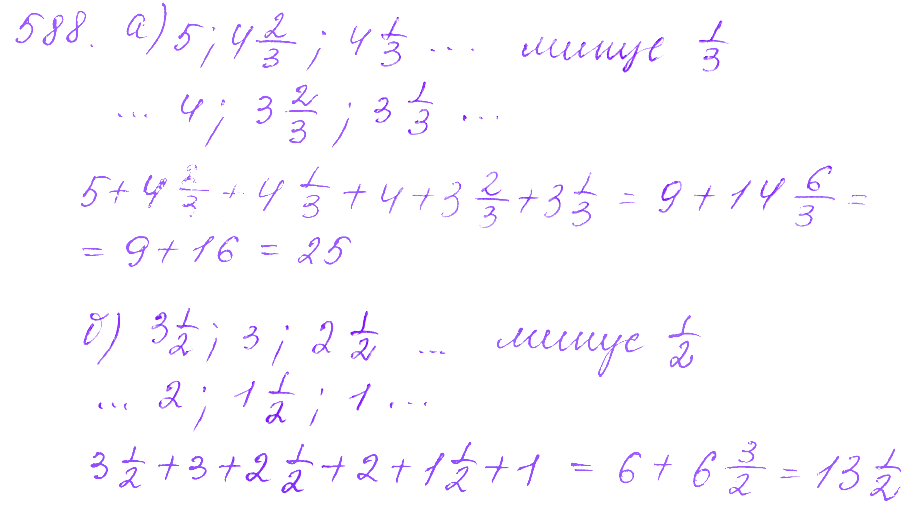 588. а) 5; 4 2/3; 4 1/3 ... минус 1/3
... 4; 3 2/3; 3 1/3 ...
5 + 4 2/3 + 4 1/3 + 4 + 3 2/3 + 3 1/3 = 9 + 14 6/3 =
= 9 + 16 = 25
б) 3 1/2; 3; 2 1/2 ... минус 1/2
... 2; 1 1/2; 1 ...
3 1/2 + 3 + 2 1/2 + 2 + 1 1/2 + 1 = 6 + 6 3/2 = 13 1/2